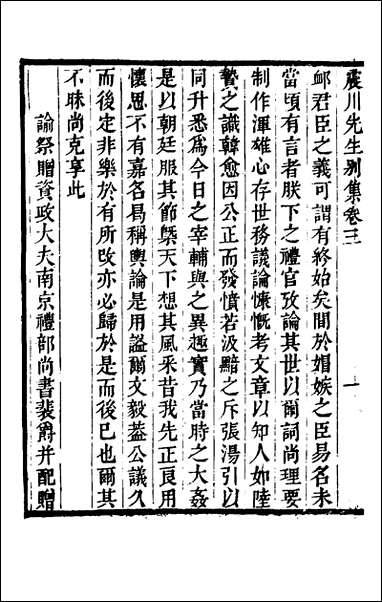 震川先生別集卷三　一
䘏君臣之義可謂有終始矣間於媢嫉之臣易名未
當頃有言者朕下之禮官攷論其世以爾詞尚理要
制作渾雄心存世務議論慷慨考文章以知人如陸
贄之識韓愈因公正而發憤若汲黯之斥張湯引以
同升悉為今日之宰輔與之異趣實乃當時之大姦
是以朝廷服其節槩天下想其風采昔我先正良用
懷思不有嘉名曷稱輿論是用謚爾文毅葢公議久
而後定非樂於有所改亦必歸於是而後已也爾其
不昧尚克享此
諭祭贈資政大夫南京禮部尚書裴爵并配贈